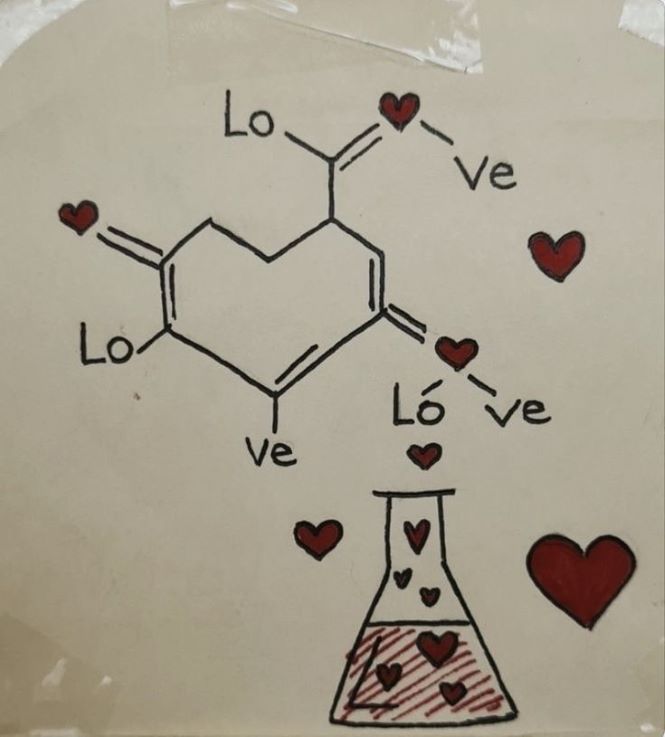 Lo
Ve
Lo
Ló ve
ve